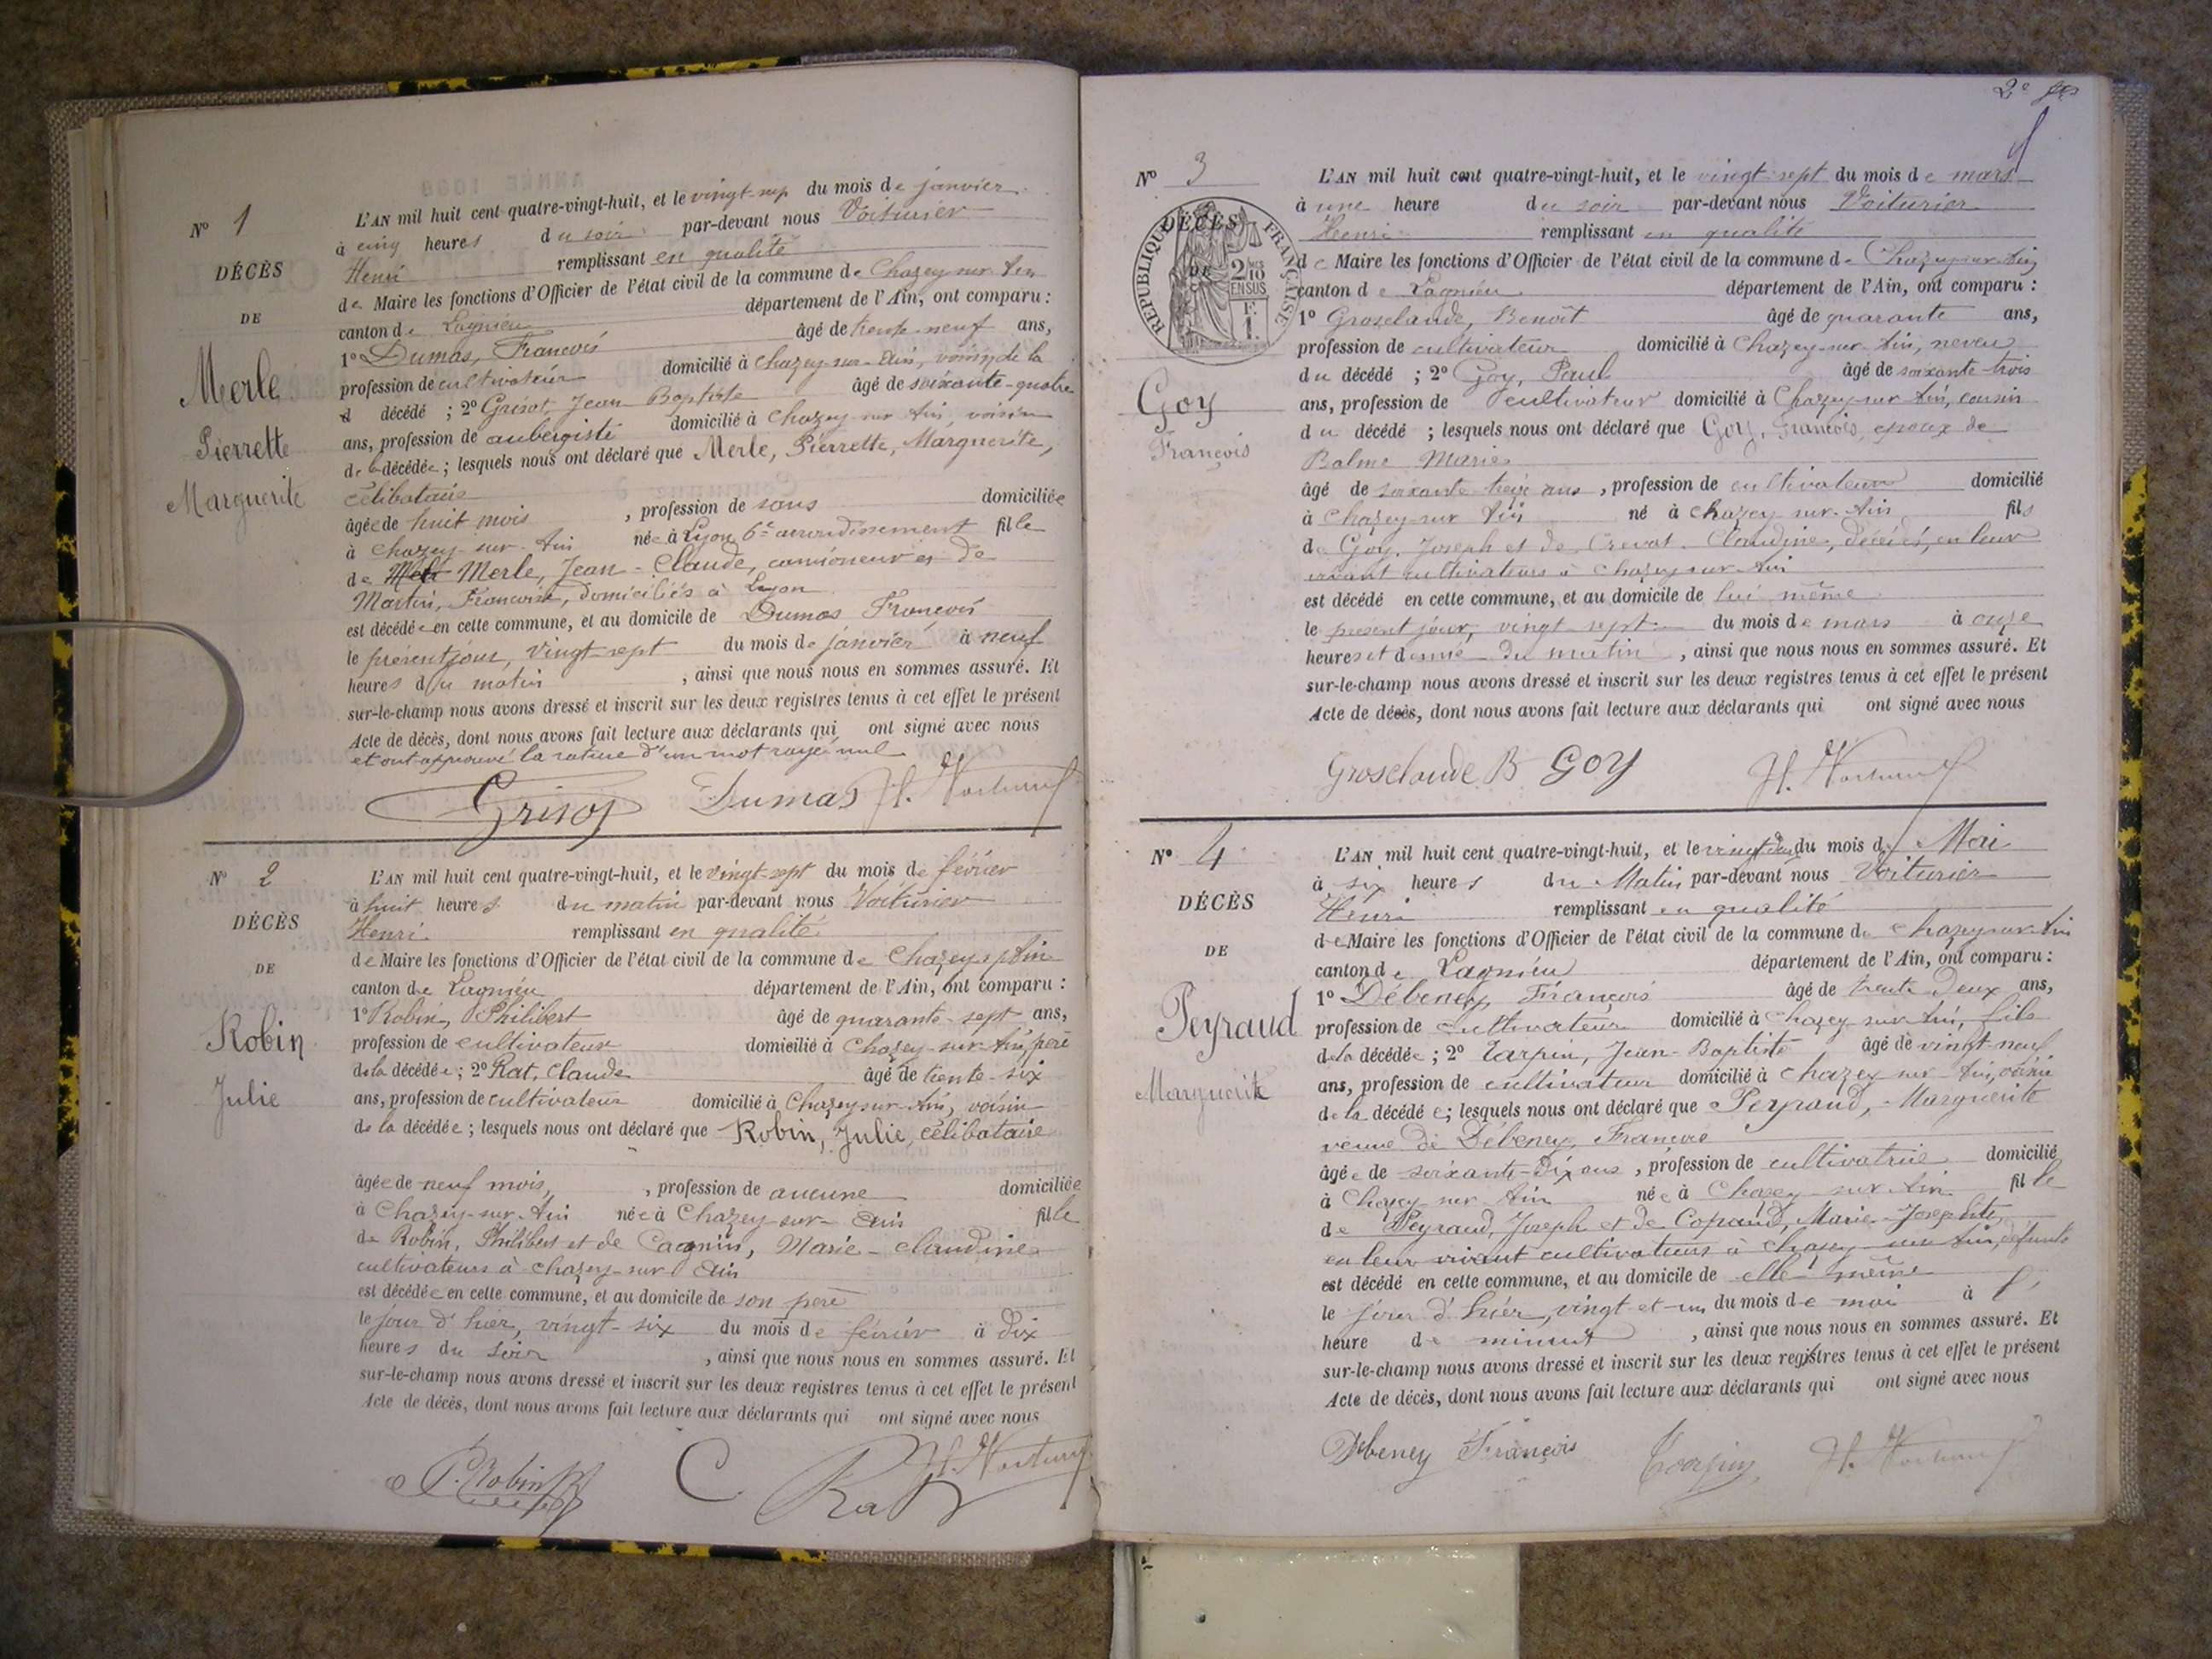 N° 1
DÉCÈS
DE
Merle
Pierrette
Marguerite
L'AN mil huit cent quatre-vingt-huit, et le vingt-sep du mois de janvier
à cinq heures du soir par-devant nous Voiturier
Henri remplissant en qualité
de Maire les fonctions d'Officier de l'état civil de la commune de Chazey sur Ain
canton de Lagnieu département de l'Ain, ont comparu :
1° Dumas, François âgé de trente neuf ans,
profession de cultivateur domicilié à Chazey-sur-Ain, voisin de la
d décédé ; 2° Grisot, Jean Baptiste âgé de soixante-quatre
ans, profession de aubergiste domicilié à Chazey sur Ain voisin
de la décédée ; lesquels nous ont déclaré que Merle, Pierrette, Marguerite,
célibataire
âgée de huit mois , profession de sans domiciliée
à Chazey-sur-Ain née à Lyon 6e arrondissement fille
de Merle, Jean-Claude, camioneur et de
Martin, Françoise, domiciliés à Lyon
est décédée en cette commune, et au domicile de Dumas François
le présent jour, vingt-sept du mois de janvier à neuf
heures du matin , ainsi que nous nous en sommes assuré. Et
sur-le-champ nous avons dressé et inscrit sur les deux registres tenus à cet effet le présent
Acte de décès, dont nous avons fait lecture aux déclarants qui ont signé avec nous
et ont approuvé la rature d'un mot rayé nul
Grisot Dumas H. Voiturier
N° 2
DÉCÈS
DE
Robin
Julie
L'AN mil huit cent quatre-vingt-huit, et le vingt-sept du mois de février
à huit heures du matin par-devant nous Voiturier
Henri remplissant en qualité
de Maire les fonctions d'Officier de l'état civil de la commune de Chazey s/Ain
canton de Lagnieu département de l'Ain, ont comparu :
1° Robin, Philibert âgé de quarante-sept ans,
profession de cultivateur domicilié à Chazey-sur-Ain, père
de la décédée ; 2° Rat, Claude âgé de trente-six
ans, profession de cultivateur domicilié à Chazey sur Ain, voisin
de la décédée ; lesquels nous ont déclaré que Robin, Julie, célibataire
âgée de neuf mois, , profession de aucune domiciliée
à Chazey-sur-Ain née à Chazey-sur-Ain fille
de Robin, Philibert et de Cagnin, Marie-Claudine
cultivateurs à Chazey-sur Ain
est décédée en cette commune, et au domicile de son père
le jour d'hier, vingt-six du mois de février à dix
heures du soir , ainsi que nous nous en sommes assuré. Et
sur-le-champ nous avons dressé et inscrit sur les deux registres tenus à cet effet le présent
Acte de décès, dont nous avons fait lecture aux déclarants qui ont signé avec nous
P. Robin C. Rat H. Voiturier
2e
N° 3
DÉCÈS
DE
RÉPUBLIQUE FRANÇAISE
2/10
EN SUS
F.
1.
Goy
François
L'AN mil huit cent quatre-vingt-huit, et le vingt-sept du mois de mars
à une heure du soir par-devant nous Voiturier
Henri remplissant en qualité
de Maire les fonctions d'Officier de l'état civil de la commune de Chazey-sur-Ain
canton de Lagnieu département de l'Ain, ont comparu :
1° Groselaude, Benoît âgé de quarante ans,
profession de cultivateur domicilié à Chazey-sur-Ain, neveu
du décédé ; 2° Goy, Paul âgé de soixante-trois
ans, profession de cultivateur domicilié à Chazey-sur Ain, cousin
du décédé ; lesquels nous ont déclaré que Goy, François, époux de
Balme Marie
âgé de soixante treize ans , profession de cultivateur domicilié
à Chazey-sur Ain né à Chazey sur-Ain fils
de Goy, Joseph et de Crevat Claudine, décédés, en leur
vivant cultivateurs à Chazey sur Ain
est décédé en cette commune, et au domicile de lui même
le présent jour, vingt-sept du mois de mars à onze
heures et demie du matin , ainsi que nous nous en sommes assuré. Et
sur-le-champ nous avons dressé et inscrit sur les deux registres tenus à cet effet le présent
Acte de décès, dont nous avons fait lecture aux déclarants qui ont signé avec nous
Groselaude B GOY H. Voiturier
N° 4
DÉCÈS
DE
Peyraud
Marguerite
L'AN mil huit cent quatre-vingt-huit, et le vingt deux du mois de Mai
à six heures du Matin par-devant nous Voiturier
Henri remplissant en qualité
de Maire les fonctions d'Officier de l'état civil de la commune de Chazey sur Ain
canton de Lagnieu département de l'Ain, ont comparu :
1° Débeney, François âgé de trente deux ans,
profession de cultivateur domicilié à Chazey sur Ain, fils
de la décédée ; 2° Tarpin, Jean-Baptiste âgé de vingt-neuf
ans, profession de cultivateur domicilié à Chazey-sur-Ain, voisin
de la décédée ; lesquels nous ont déclaré que Peyraud, Marguerite
veuve de Débeney, François
âgée de soixante-dix ans , profession de cultivatrice domicilié
à Chazey sur Ain née à Chazey sur Ain fille
de Peyraud, Joseph et de Copand, Marie-Josephte,
en leur vivant cultivateurs à Chazey sur Ain, défunts
est décédé en cette commune, et au domicile de elle même
le jour d'hier, vingt-et-un du mois de mai à l'
heure de minuit , ainsi que nous nous en sommes assuré. Et
sur-le-champ nous avons dressé et inscrit sur les deux registres tenus à cet effet le présent
Acte de décès, dont nous avons fait lecture aux déclarants qui ont signé avec nous
Debeney François Tarpin H. Voiturier